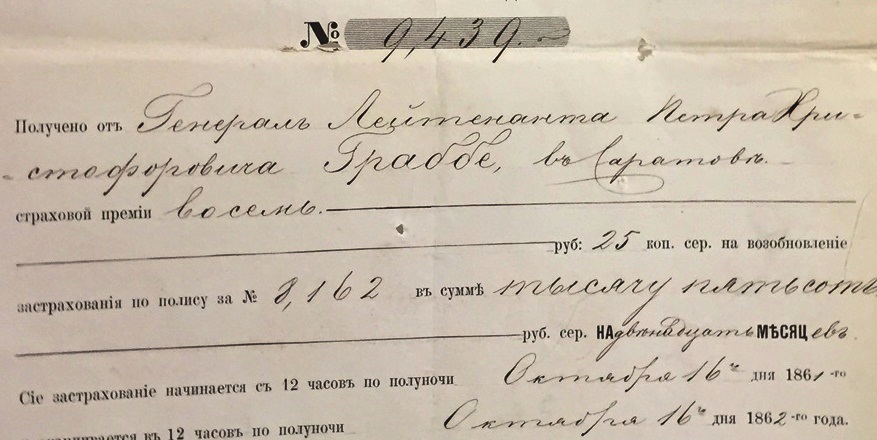 № 9,439.
Получено отъ Генералъ Лейтенанта Петра Хри-
стофоровича Граббе, въ Саратовѣ.
страховой преміи восемь.
руб: 25 коп. сер. на возобновленіе
застрахованія по полису за № 8,162 въ суммѣ тысячу пятьсотъ
руб. сер. НА двѣнадцать МѢСЯЦевъ
Сіе застрахованіе начинается съ 12 часовъ по полуночи Октября 16го дня 1861-го
въ 12 часовъ по полуночи Октября 16го дня 1862-го года.